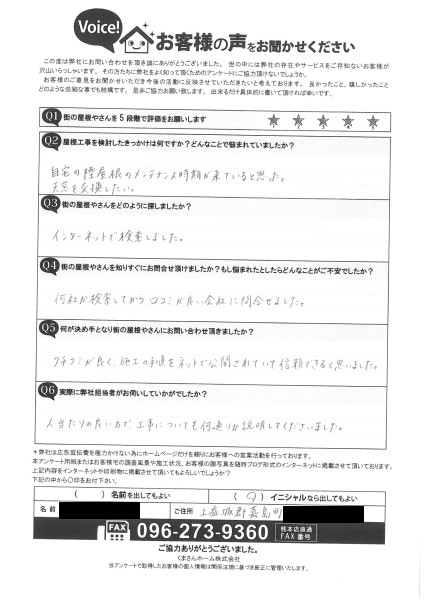 Voice!
お客様の声をお聞かせください
この度は弊社にお問い合わせを頂き誠にありがとうございました。世の中には弊社の存在やサービスをご存知ないお客様が
沢山いらっしゃいます。その方たちに弊社をよく知って頂くためのアンケートにご協力頂けないでしょうか。
お客様のご意見をお聞かせいただき今後の活動に反映させていただきたいと考えております。良かったこと、嬉しかったこと
どのような些細な事でも結構です。是非ご協力お願い致します。出来るだけ具体的に書いて頂ければ幸いです。
Q1 街の屋根やさんを5段階で評価をお願いします ★ ★ ★ ★ ★
Q2 屋根工事を検討したきっかけは何ですか？どんなことで悩まれていましたか？
自宅の陸屋根のメンテナンス時期が来ていると思った。
天窓を交換したい。
Q3 街の屋根やさんをどのように探しましたか？
インターネットで検索しました。
Q4 街の屋根やさんを知りすぐにお問合せ頂けましたか？もし悩まれたとしたらどんなことがご不安でしたか？
何社か検索してから口コミが良い会社に問合せました。
Q5 何が決め手となり街の屋根やさんにお問い合わせ頂きましたか？
クチコミが良く、施工の手順をネットで公開されていて信頼できると思いました。
Q6 実際に弊社担当者がお伺いしていかがでしたか？
人当たりの良い方で、工事についても何通りか説明してくださいました。
＊弊社は広告宣伝費を極力かけない為にホームページだけを頼りにお客様への営業活動を行っております。
本アンケート用紙またはお客様宅の調査風景や施工状況、お客様の顔写真を随時ブログ形式のインターネットに掲載させて頂いております。
上記内容をインターネットや印刷物に掲載させて頂いてもよろしいでしょうか？
下記の中から〇印をお付下さい。
( ) 名前を出してもよい (〇) イニシャルなら出してもよい
名前 ご住所 上益城郡嘉島町
FAX 096-273-9360 熊本店直通
FAX番号
ご協力ありがとうございました。
くまさんホーム株式会社
当アンケートで取得したお客様の個人情報は関係法規に基づき厳正に管理いたします。